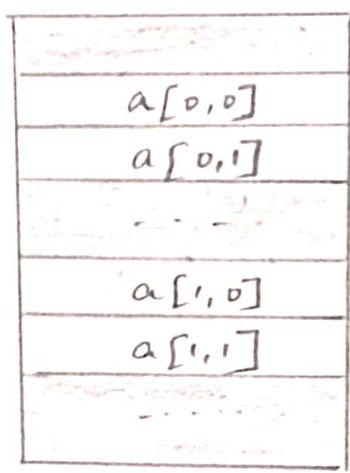 a[0,0]
a[0,1]
- - - -
a[1,0]
a[1,1]
- - - - -